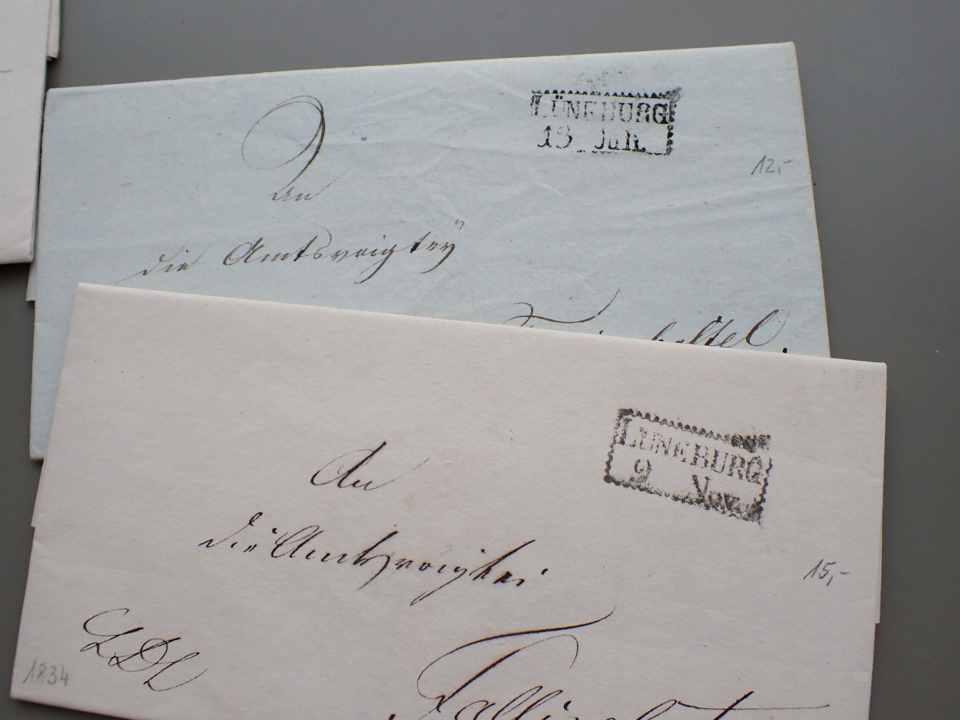 LÜNEBURG
13 Juli.
12,-
An
die Amtsvoigtey
LÜNEBURG
9 Nov.
An
die Amtsvoigtei
15,-
1834